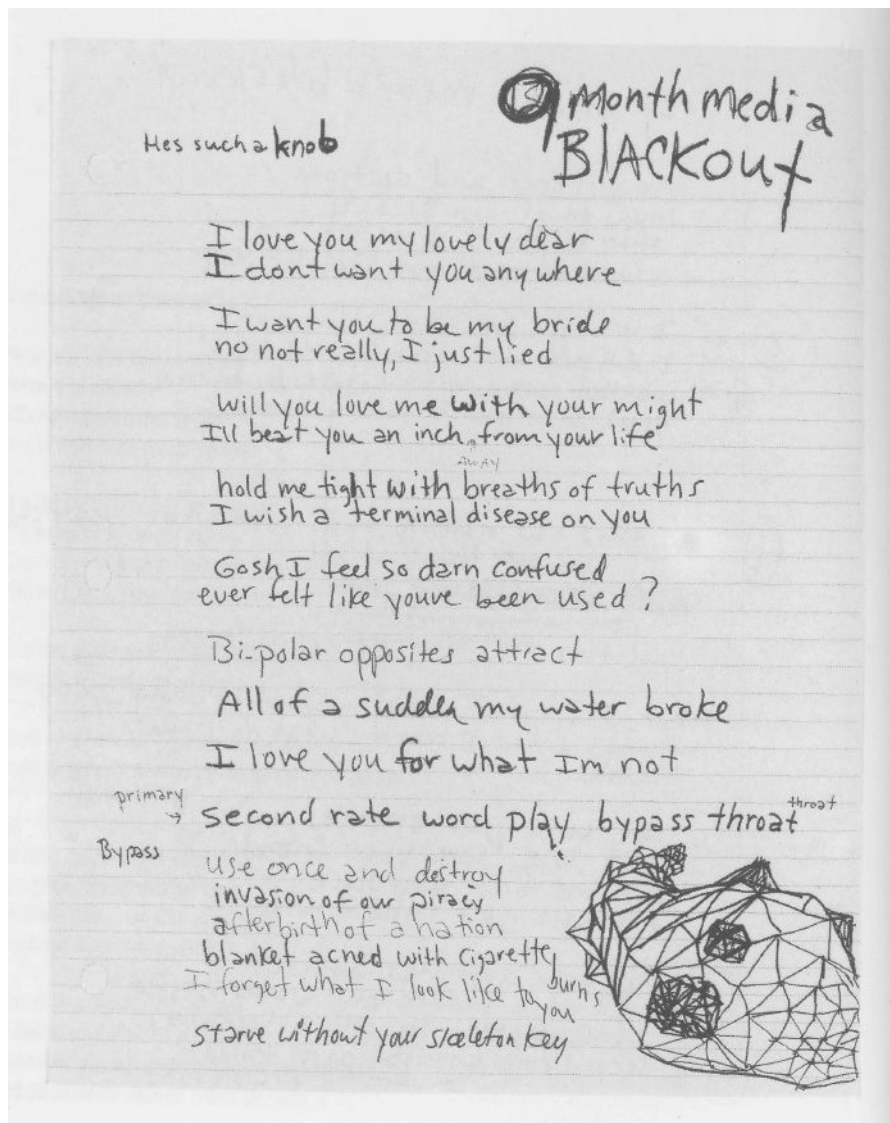 9 month media
BlACKout
Hes such a knob
I love you my lovely dear
I dont want you any where
I want you to be my bride
no not really, I just lied
will you love me with your might
Ill beat you an inch from your life
away
hold me tight with breaths of truths
I wish a terminal disease on you
Gosh I feel so darn confused
ever felt like youve been used?
Bi-polar opposites attract
All of a sudden my water broke
I love you for what Im not
primary
second rate word play bypass throat
throat
Bypass
Use once and destroy
invasion of our piracy
afterbirth of a nation
blanket acned with cigarette
burns
I forget what I look like to
you
starve without your skeleton key